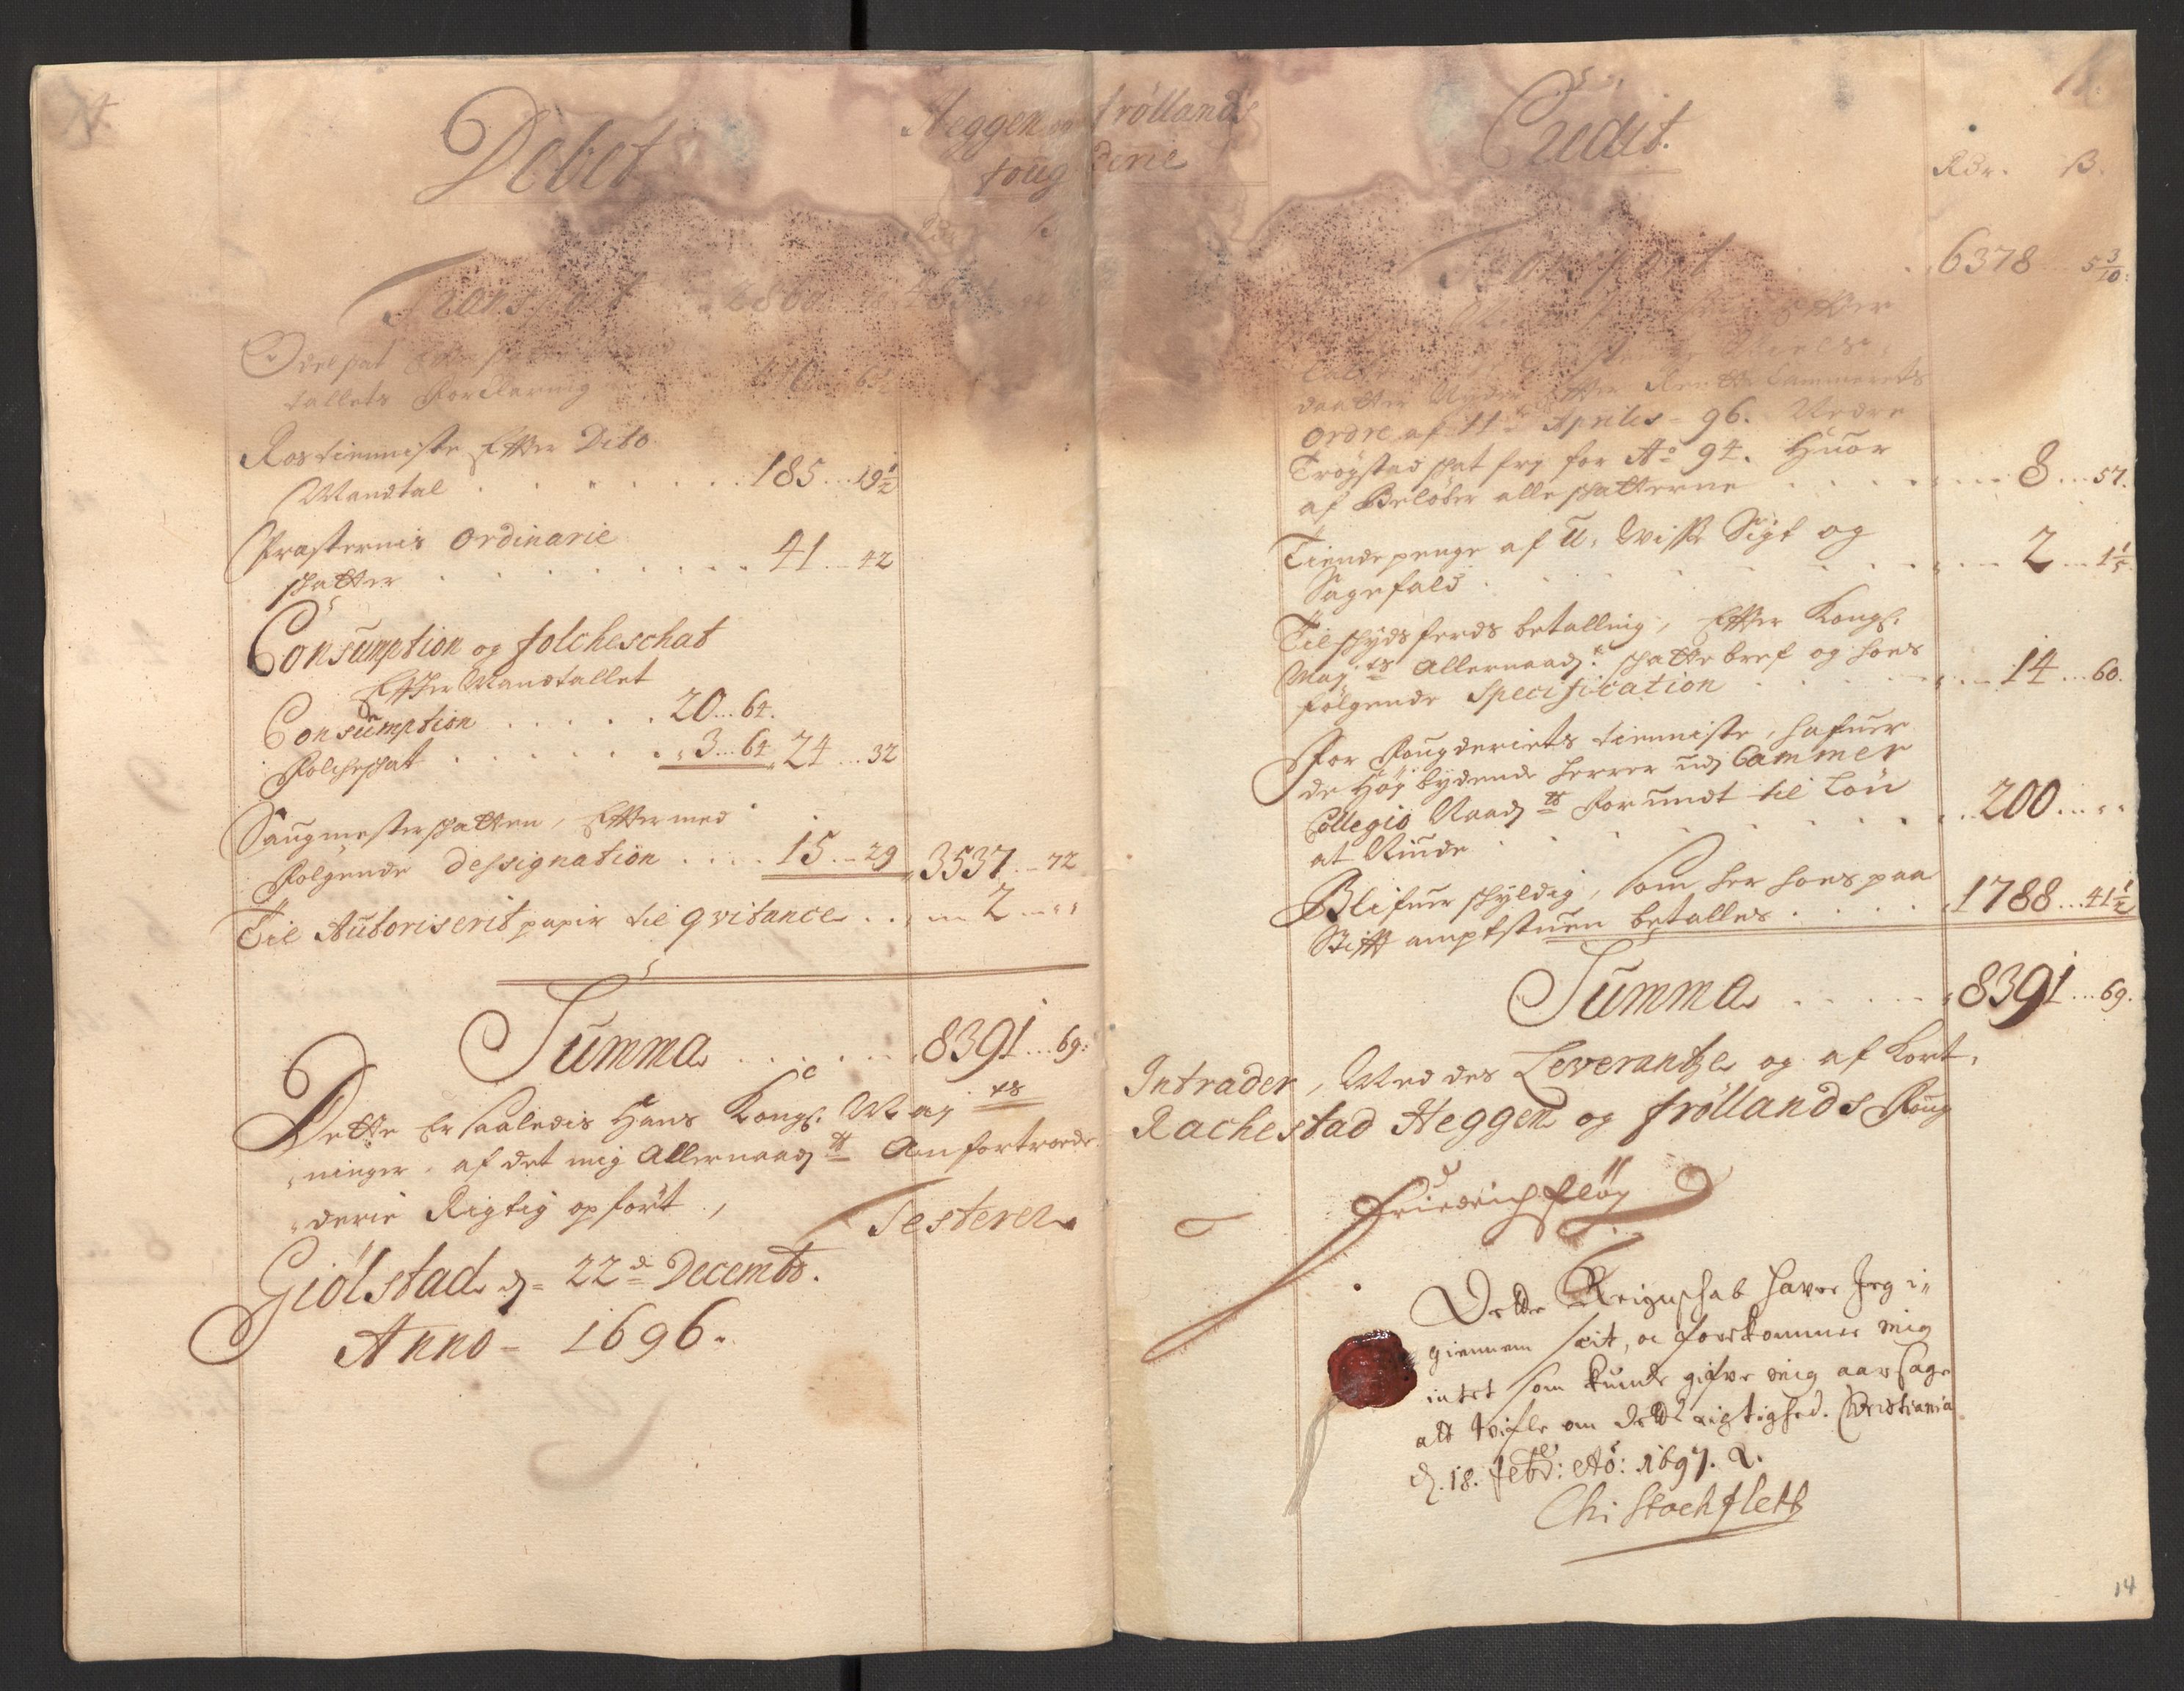 Debet
Heggen og Frøllands
foug derie
Transport
Odelsschat
tallets Forclaring
Rostienniste Efter Dito
Mandtal . . . . . . 185 ... 19½
Præsternis Ordinarie
schatter . . . . . . 41 ... 42
Consumption og folcheschat
Efter Mandtallet
Consumption . . . . . 20 ... 64.
Folcheschat . . . . . 3 ... 64 24 ... 32
Saugmesterschatten, Efter med
følgende Designation . . . . 15 ... 29 3537 ... 72
Til Autoriserit papir til qvitance . . 2 ... "
Summa . . . . . 8391 ... 69:
Dette Er saaledis Hans Kongl. May ts
ninger, af det mig Allernaadt Anfortroede
derie Rigtig opført,
Testerer
Giølstad d= 22d Decembr.
Anno - 1696.
Credit.
Rdr. ß.
Transport . . 6378 5 3/10:
Efter
daatter Nyder Efter Rentte Cammerets
Ordre af 11 Aprilis - 96. Nedre
Trøgstad schat fry for Ao 94. Huor
af Beløber alle schatterne . . . . 8 ... 57.
Tiendepenge af U-Wisse Sigt og
Sagefald . . . . . 2 ... 1 1/5.
Til schydsferds betalling, Efter Kongl.
May ts Allernaad: schattebref og hoes
følgende Specification . . . . 14 ... 60.
For Fougderiets tienniste, hafuer
de Høybydende Herrer udj Cammer
Collegio Naadt Forundt til Løn
at Niude . . . . . 200 ... "
Blifuer schyldig, som her hoes paa
Stifft amptstuen betalles . . . . 1788 ... 41½
Summa . . . . . 8391 ... 69.
Intrader, Med des Leverantze og af kort,
Rachestad Heggen og frøllands Foug
Friedrich Fløg
Dette Reignschab haver Jeg i=
giennem seit, oc forekommer mig
intet som kunde gifve mig aarsage
att tvifle om dets rigtighed. Christiania
d. 18. Febr: Ao: 1697.
Chr Stochfleth
14